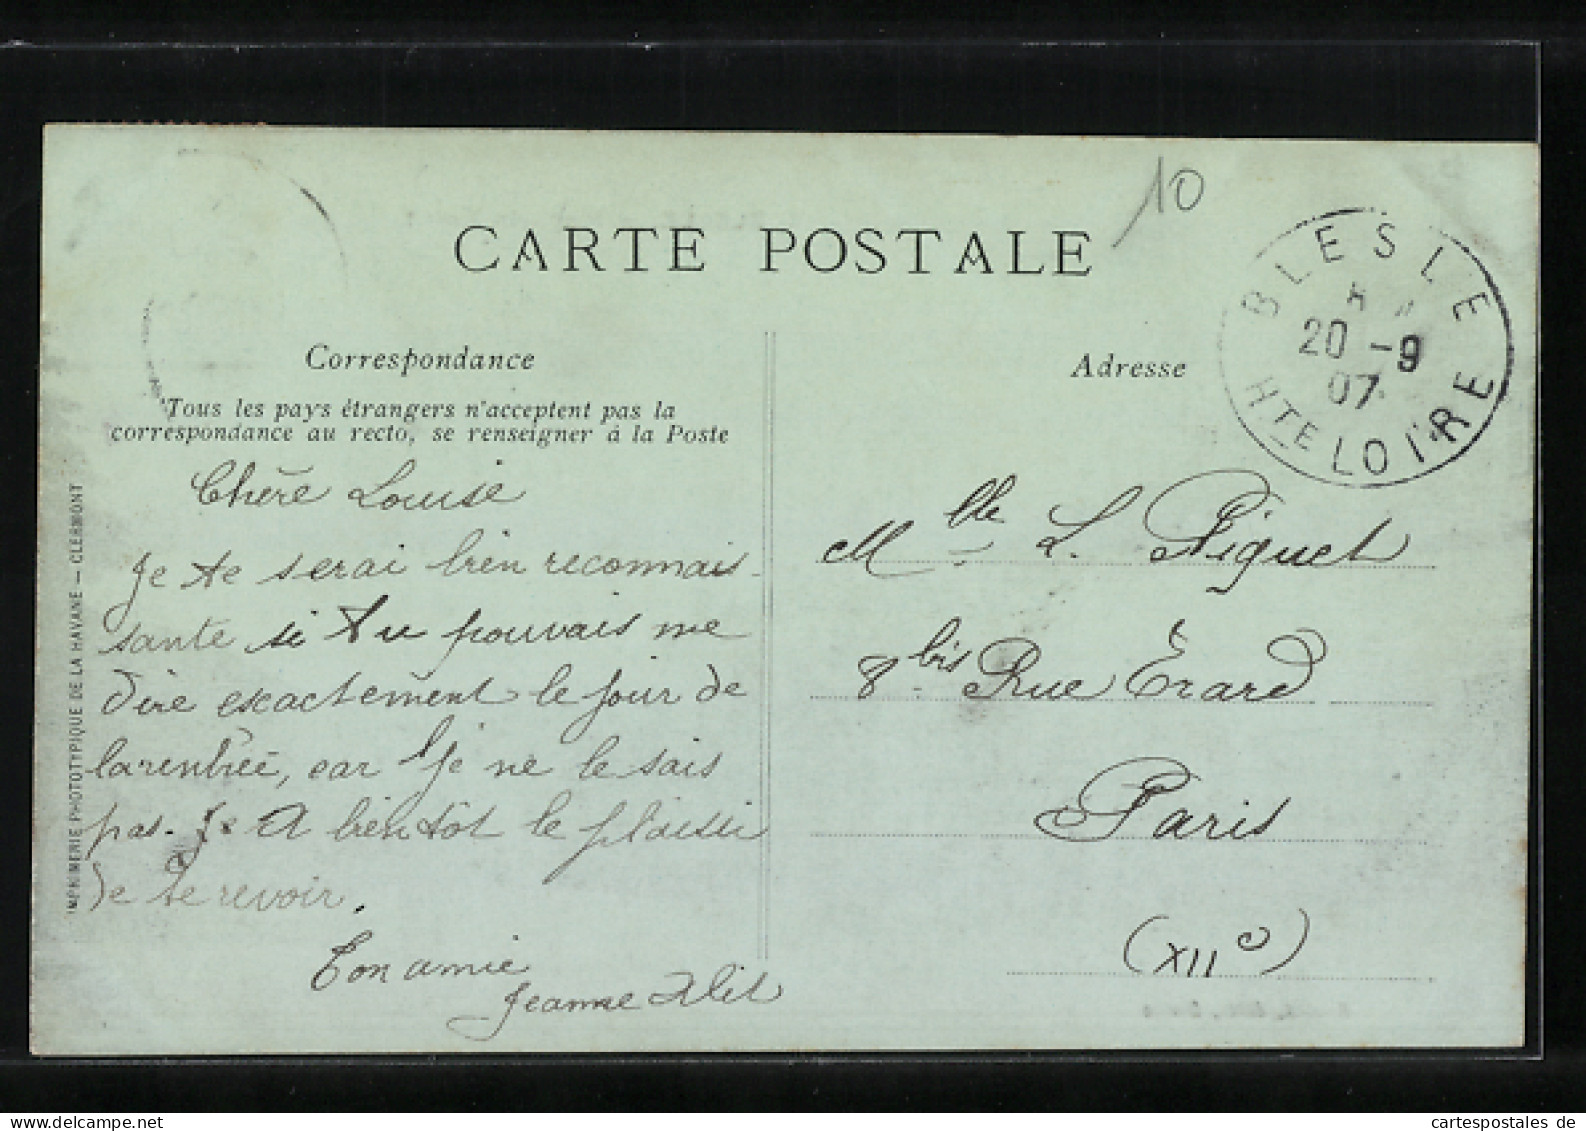 10
CARTE POSTALE
BLESLE
20 -9
07
HTE LOIRE
Correspondance
Tous les pays étrangers n'acceptent pas la
correspondance au recto, se renseigner à la Poste
Chère Louise
Je te serai bien reconnais-
sante si tu pouvais me
dire exactement le jour de
la rentrée, car je ne le sais
pas. A bientôt le plaisir
de te revoir.
Ton amie
Jeanne
IMPRIMERIE PHOTOTYPIQUE DE LA HAVANE — CLERMONT
Adresse
Mlle L. Piguet
8 bis Rue Erard
Paris
(XIIe)
cartespostales de